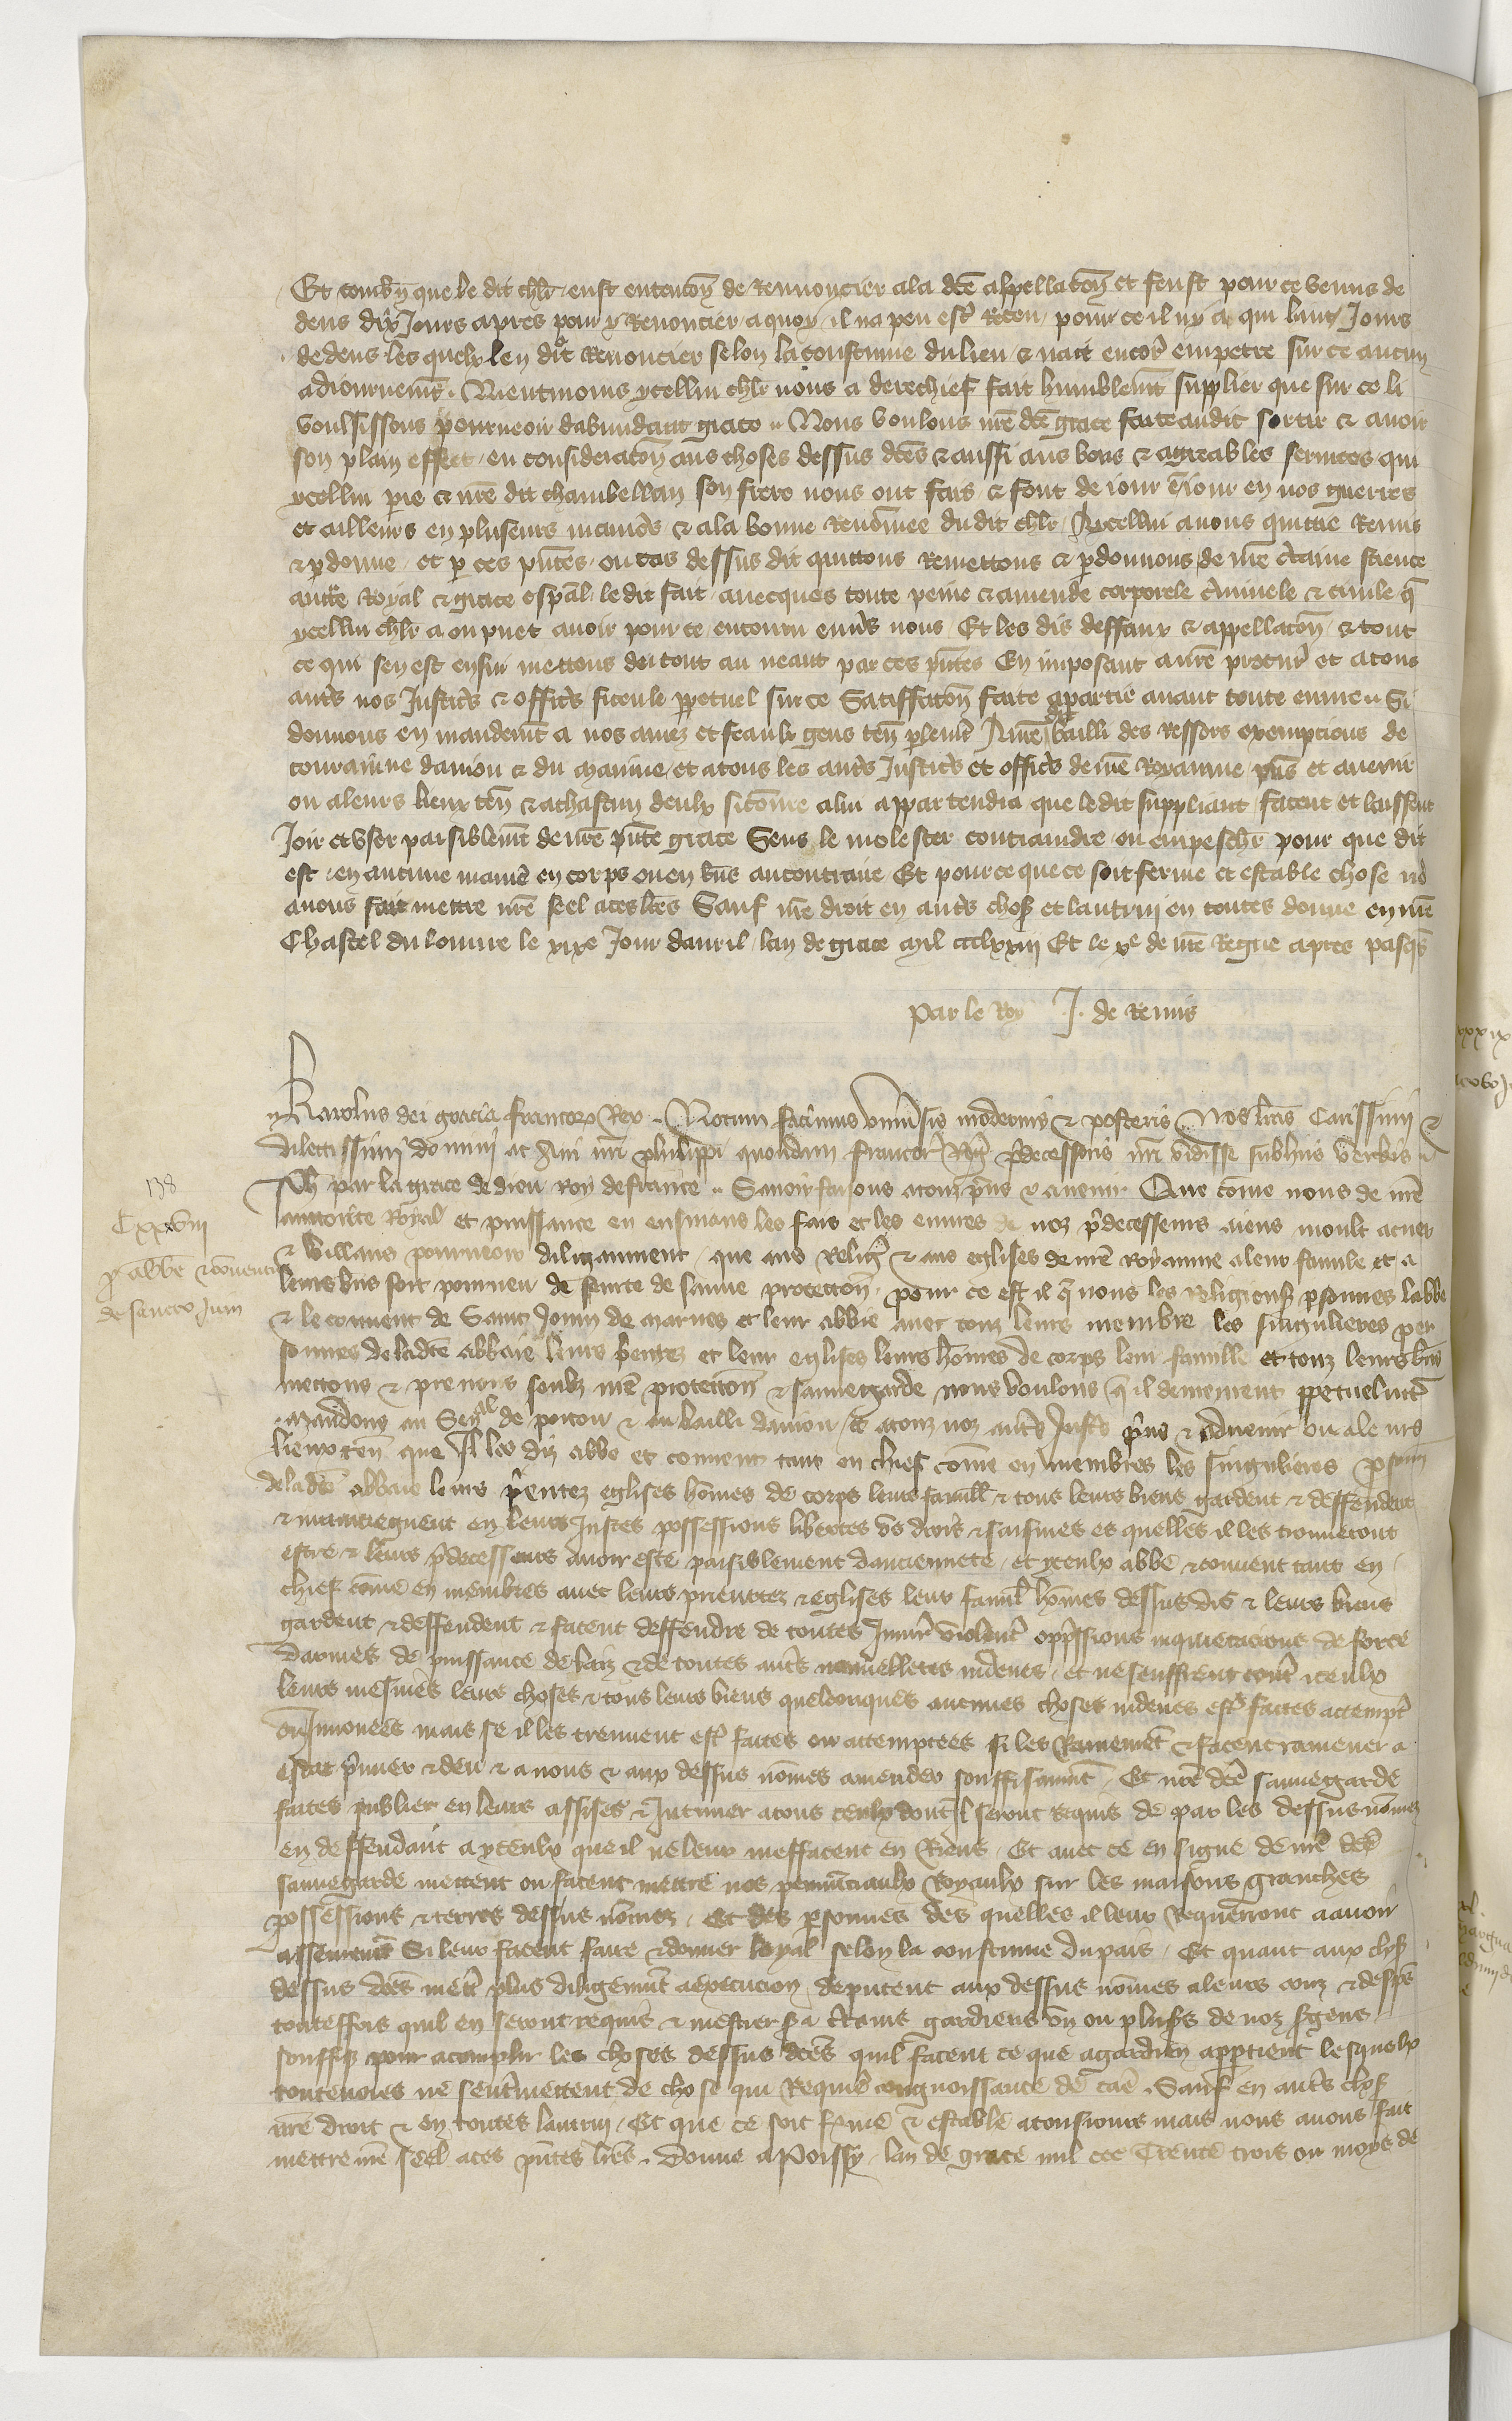 Et combn̄ que le dit chlr̄ eust entencōn de Renoncier ala dc̄e appellacōn et feust pour ce venus de
dens dix Jours apres pour y Renoncier aquoy il na peu estr̄ Receu pour ce il ny a qui huit Jours
dedens les quelx len doit Renoncier selon la coustume du lieu & nait encor̄ empetre sur ce aucun
adiournemt̄. Nientmoins ycellui chlr̄ nous a derechief fait humblemt̄ supplier que sur ce li
voulsissons pourueoir dabundant grace. Nous voulons nr̄e dc̄e grace faite audit sortir & auoir
son plain effect, en consideracōn aus choses dessus dc̄es & aussi aus bons & agreables seruices qui
ycellui per̄e & nr̄e dit chambellan son frere nous ont fais & font de iour en iour en nos guerres
et ailleurs en pluseurs manier̄s & ala bonne Renom̄ee du dit chlr̄ Ycellui auons quittie Remis
& pardonne et par ces pn̄tes ou cas dessus dit quittons Remettons & pardonnons de nr̄e certaine science
auctēe Royal & grace esp̄al le dit fait auecques toute peine & amende corporele criminele & ciuile q̄
ycellui chlr̄ a ou puet auoir pour ce encouru enuers nous Et les dis deffaux & appellacōn & tout
ce qui sen est ensui mettons du tout au neant par ces pn̄tes En imposant a nr̄e procur̄ et atous
autr̄s nos Justic̄s & offic̄s silence perpetuel sur ce Satisfacōn faite apartie auant toute euure Si
donnons en mandemt̄ a nos amez et feaulx gens ten̄ parlemt̄ Au bailli des Ressors exempcions de
touraine danjou & du Mainne et atous les autr̄s Justic̄s et offic̄s de nr̄e Royaume pn̄s et auenir
ou aleurs lieux ten̄ & achascun deulx sicōme alui appartendra que ledit suppliant facent et laissent
Joir et vser paisiblemt̄ de nr̄e pn̄te grace Sens le molester contraindre ou empeschr̄ pour que dit
est en aucune maniēe en corps ou en bn̄s au contraire Et pour ce que ce soit ferme et estable chose no⁹
auons fait mettre nr̄e seel aces lr̄es Sauf nr̄e droit en autr̄s choses et lautruy en toutes donne en nr̄e
Chastel du louure le xixe Jour dauril lan de grace Mil ccclxxiij Et le xe de nr̄e Regne apres pasqs̄
Par le Roy J. de Remis
Karolus dei gracia francor̄ Rex. Notum facimus vniūsis modernis & posteris Nos lr̄as Carissimi &
dilectissimi domini ac Aui nr̄i philippi quondam francor̄ Reg̃ p̄decessoris nr̄i vidisse subhiis verbis
Ph̄ par la grace de dieu roy de france. Sauoir faisons atouz p̄ns & auenir Que cōme nous de nr̄e
auttorite Royal et puissance en ensiuans les fais et les euures de noz p̄decesseurs aiens moult acuer
& veillans pourueoir diligaument que aus Relig̃ & aus eglises de nr̄e Royaume aleur famile et a
leurs bn̄s soit pourueu de seurte de sauue protectōn. pour ce est il q̄ nous les Religieus persones labbe
& le conuent de Saint Jouin de Marnes et leur abbie auec touz leurs membre les singulieres per
sonnes deladc̄e abbaie leurs p̄eurtez et leur eglises leurs hōmes de corps leur famille et touz leurs bn̄s
mettons & prenons soubz nr̄e protectōn & sauuegarde nous voulons q̄ il demeurent perpetuelmt̄
Mandons au Senal de poitou & au bailli danjou & atouz noz autr̄s Justic̄ p̄ns & aduenir ou aleurs
lieux ten̄ que Il les diz abbe et conuent tant en chief cōme en membres les singulieres pson̄
deladc̄e abbaie leurs p̄eurtez eglises hōmes de corps leurs famill̄ & tous leurs biens gardent & deffendent
& maintiegnent en leurs Justes possessions libertes vs drois & saisines es quelles il les trouueront
estre & leurs p̄decesseurs auoir este paisiblement danciennete et yceulx abbe & conuent tant en
chief cōme en membres auec leurs prieurtez & eglises leur famil̄ hōmes dessus dis & leurs biens
gardent & deffendent & facent deffendre de toutes Iniur̄ violenc̄ opp̄ssions inquietacions de force
darmes de puissance de laiz & de toutes autr̄s nouuelletes indeues et ne seuffrent contr̄ iceulx
leurs mesmes leurs choses & tous leurs biens quelconques aucunes choses indeues estr̄ faites attempt̄
ou Innouees mais se il les treuuent estr̄ faites ou attemptees si les Ramenent & facent ramener a
estat p̄mier & deu & a nous & aux dessus nōmes amender souffisaumt̄ Et nr̄e dc̄e sauuegarde
faites publier en leurs assises & Intimer atous ceulx dont Il seront Requis de par les dessus nōmez
en deffendant a yceulx que il ne leur meffacent en Riens Et auec ce en signe de nr̄e dc̄e
sauuegarde mettent ou facent mettre nos pennunciaulx Royaulx sur les maisons granches
possessions & terres dessus nōmez. Et des personnes des quelles il leur Requerront aauoir
asseurmt̄ Si leur facent faire & donner loyal selon la coustume du pais. Et quant aux chos̄
dessus dc̄es mettr̄ plus diligemmt̄ aexecucion deputent aux dessus nōmes aleurs couz & desp̄s
toutesfois quil en seront requis & mestier s̄a certains gardiens vn ou plus̄s de noz s̄gens
souffis̄ pour acomplir les choses dessus dc̄es quil facent ce que agardien appartient lesquelx
toutesuoies ne sentremettent de chose qui Requier̄ congnoissance de cāe. Sauf en autr̄s chos̄
nr̄e droit & en toutes lautruy Et que ce soit ferme & estable atousiours mais nous auons fait
mettre nr̄e seel aces pn̄tes lr̄es. Donne a Poissy lan de grace mil ccc Trente trois ou moys de
138
Cxxxviij
p̄ abbe & conuentu
de sancto Juin